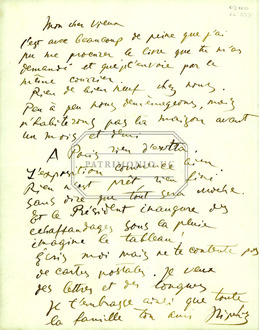 Mon cher vieux
C'est avec beaucoup de peine que j'ai
pu me procurer le livre que tu m'as
demandé et que je t'envoie par ce
même courrier.
Rien de bien neuf chez nous.
Peu à peu nous déménageons, mais
n'habiterons pas la maison avant
un mois et demi
A Paris rien d'extra.
L'exposition commence bien
Rien n'est prêt rien fini
sans dire que tout sera moche.
Et le Président inaugure des
echaffaudages sous la pluie
imagine le tableau.
Écris moi mais ne te contente pas
de cartes postales. Je veux
des lettres et des longues
Je t'embrasse ainsi que toute
la famille ton ami
PATRIMOINE